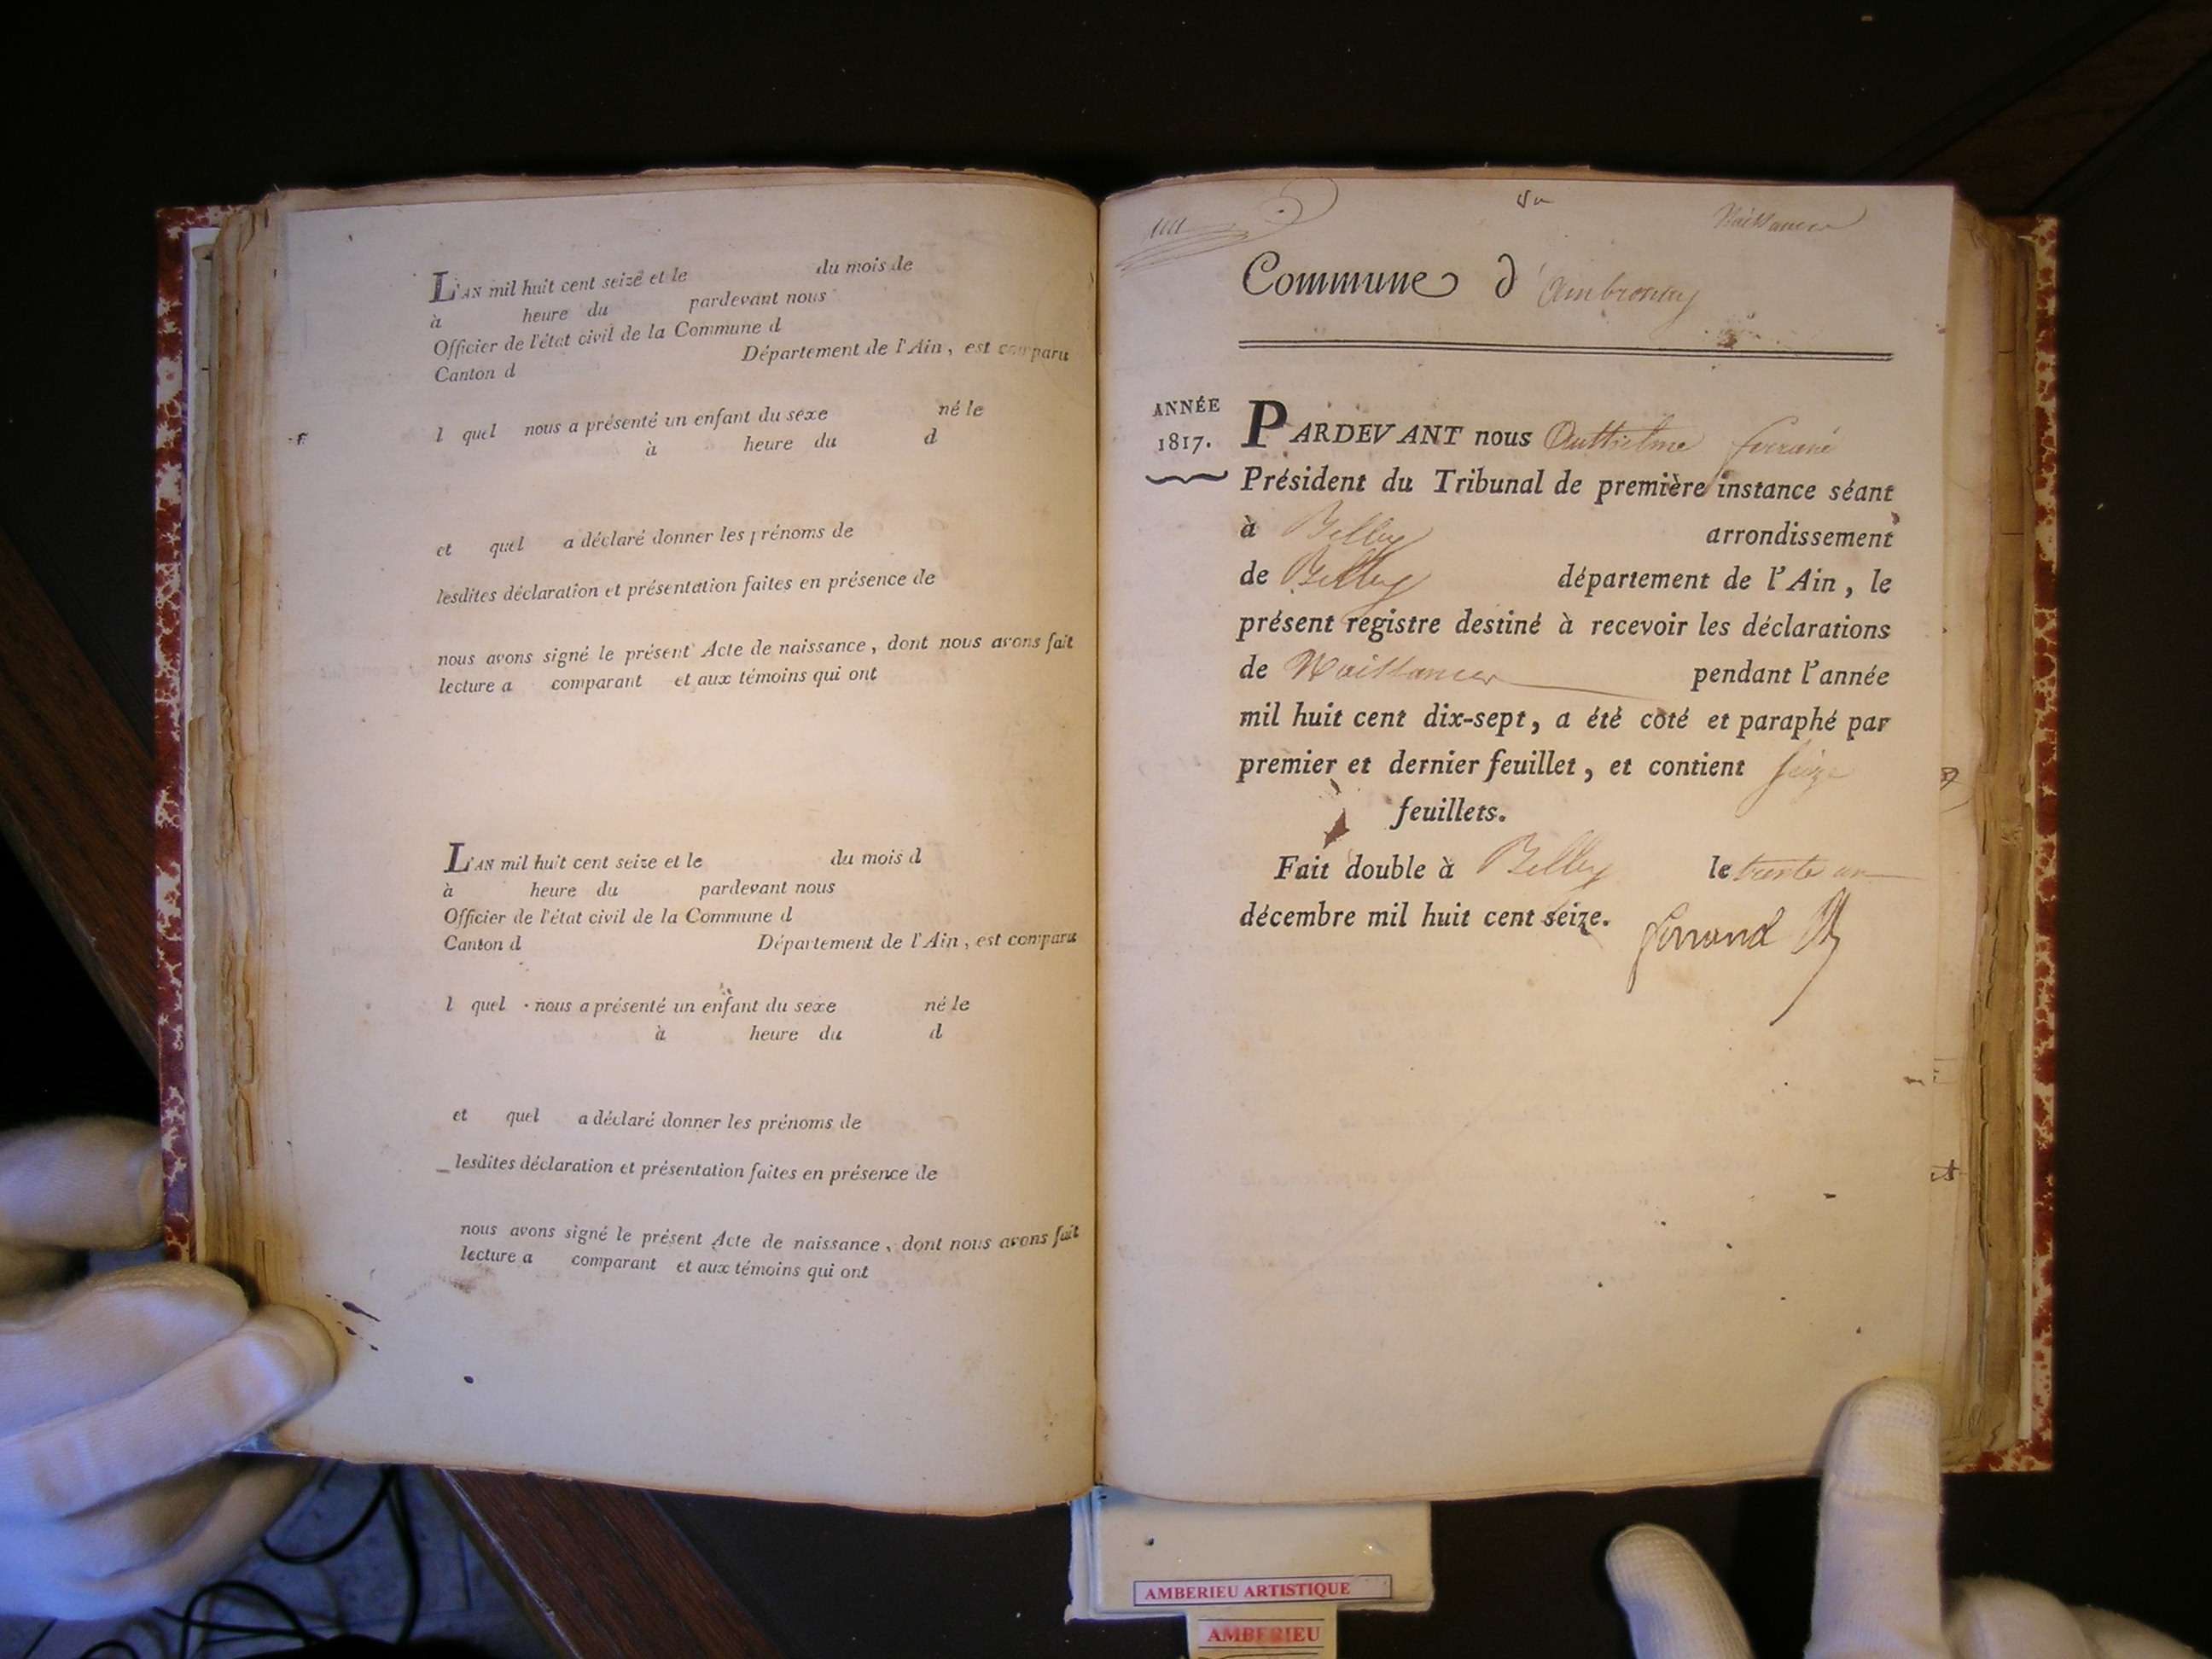 L'AN mil huit cent seize et le du mois de
à heure du pardevant nous
Officier de l'état civil de la Commune d
Canton d Département de l'Ain, est comparu
l quel nous a présenté un enfant du sexe né le
à heure du d
et quel a déclaré donner les prénoms de
lesdites déclaration et présentation faites en présence de
nous avons signé le présent Acte de naissance, dont nous avons fait
lecture a comparant et aux témoins qui ont
L'AN mil huit cent seize et le du mois d
à heure du pardevant nous
Officier de l'état civil de la Commune d
Canton d Département de l'Ain, est comparu
l quel nous a présenté un enfant du sexe né le
à heure du d
et quel a déclaré donner les prénoms de
lesdites déclaration et présentation faites en présence de
nous avons signé le présent Acte de naissance, dont nous avons fait
lecture a comparant et aux témoins qui ont
Naissances
Commune d'ambronay
ANNÉE
1817.
PARDEVANT nous Anthelme ferrand
Président du Tribunal de première instance séant
à Belley arrondissement
de Belley département de l'Ain, le
présent registre destiné à recevoir les déclarations
de Naissances pendant l'année
mil huit cent dix-sept, a été coté et paraphé par
premier et dernier feuillet, et contient seize
feuillets.
Fait double à Belley le trente un
décembre mil huit cent seize.
ferrand
AMBERIEU ARTISTIQUE
AMBERIEU